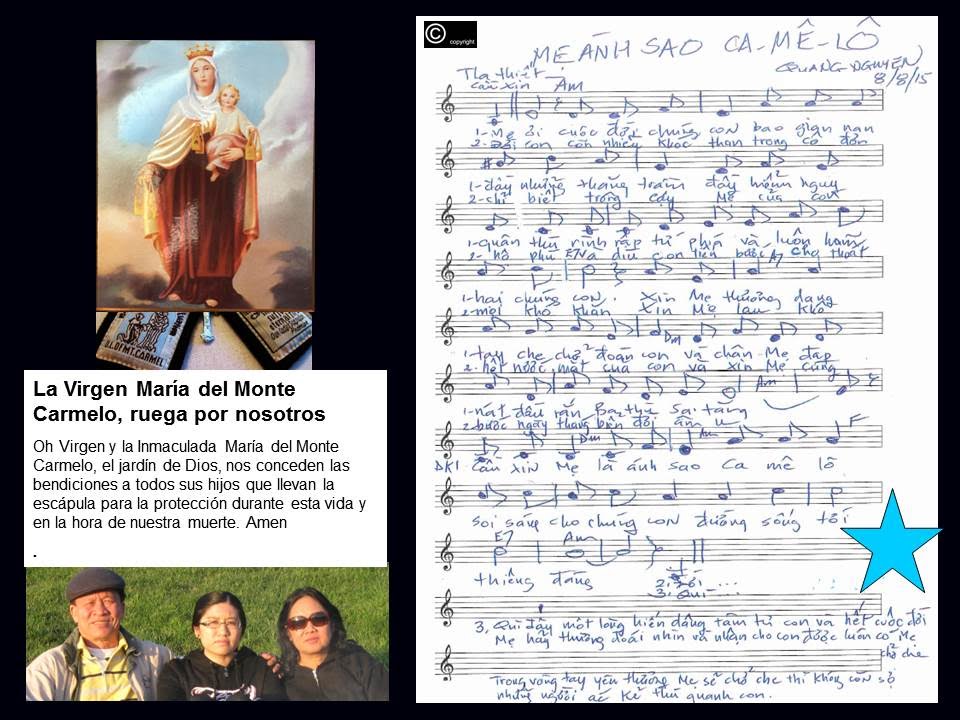 OUR
BL. OF MT. CARMEL
La Virgen María del Monte
Carmelo, ruega por nosotros
Oh Virgen y la Inmaculada María del Monte
Carmelo, el jardín de Dios, nos conceden las
bendiciones a todos sus hijos que llevan la
escápula para la protección durante esta vida y
en la hora de nuestra muerte. Amen
.
© copyright
MẸ ÁNH SAO CA-MÊ-LÔ
QUANG-NGUYEN,
8/8/15
Tha thiết
cầu xin Am
1-Mẹ ơi cuộc đời chúng con bao gian nan
2-Đời con còn nhiều khóc than trong cô đơn
1-đầy những thăng trầm đầy hiểm nguy
2-chỉ biết trông cậy Mẹ của con
1-quân thù rình rập tứ phía và luôn hãm
2-hộ phù và dìu con tiến bước cho thoát
E7 A7
1-hai chúng con. Xin Mẹ thương dang
2-mọi khó khăn Xin Mẹ lau khô
Dm
1-tay che chở đoàn con và chân Mẹ đạp
2-hết nước mắt của con và xin Mẹ cùng
Am
1-nát đầu rắn Ba thù Sa tăng
2-bước ngày tháng bên đời
Dm Am F
ĐK: Cầu xin Mẹ là ánh sao Ca mê lô
Soi sáng cho chúng con đường sống tới
E7 Am
thiêng đàng
2. Đời ...
3. Quì ...
3, Quì đây một lòng hiến dâng tâm tư con và hết cuộc đời
Mẹ hãy thương đoái nhìn và nhận cho con được luôn có Mẹ
chở che
Trong vòng tay yêu thương Mẹ sẽ chở che thì không còn sợ
những người ác kẻ thù quanh con.